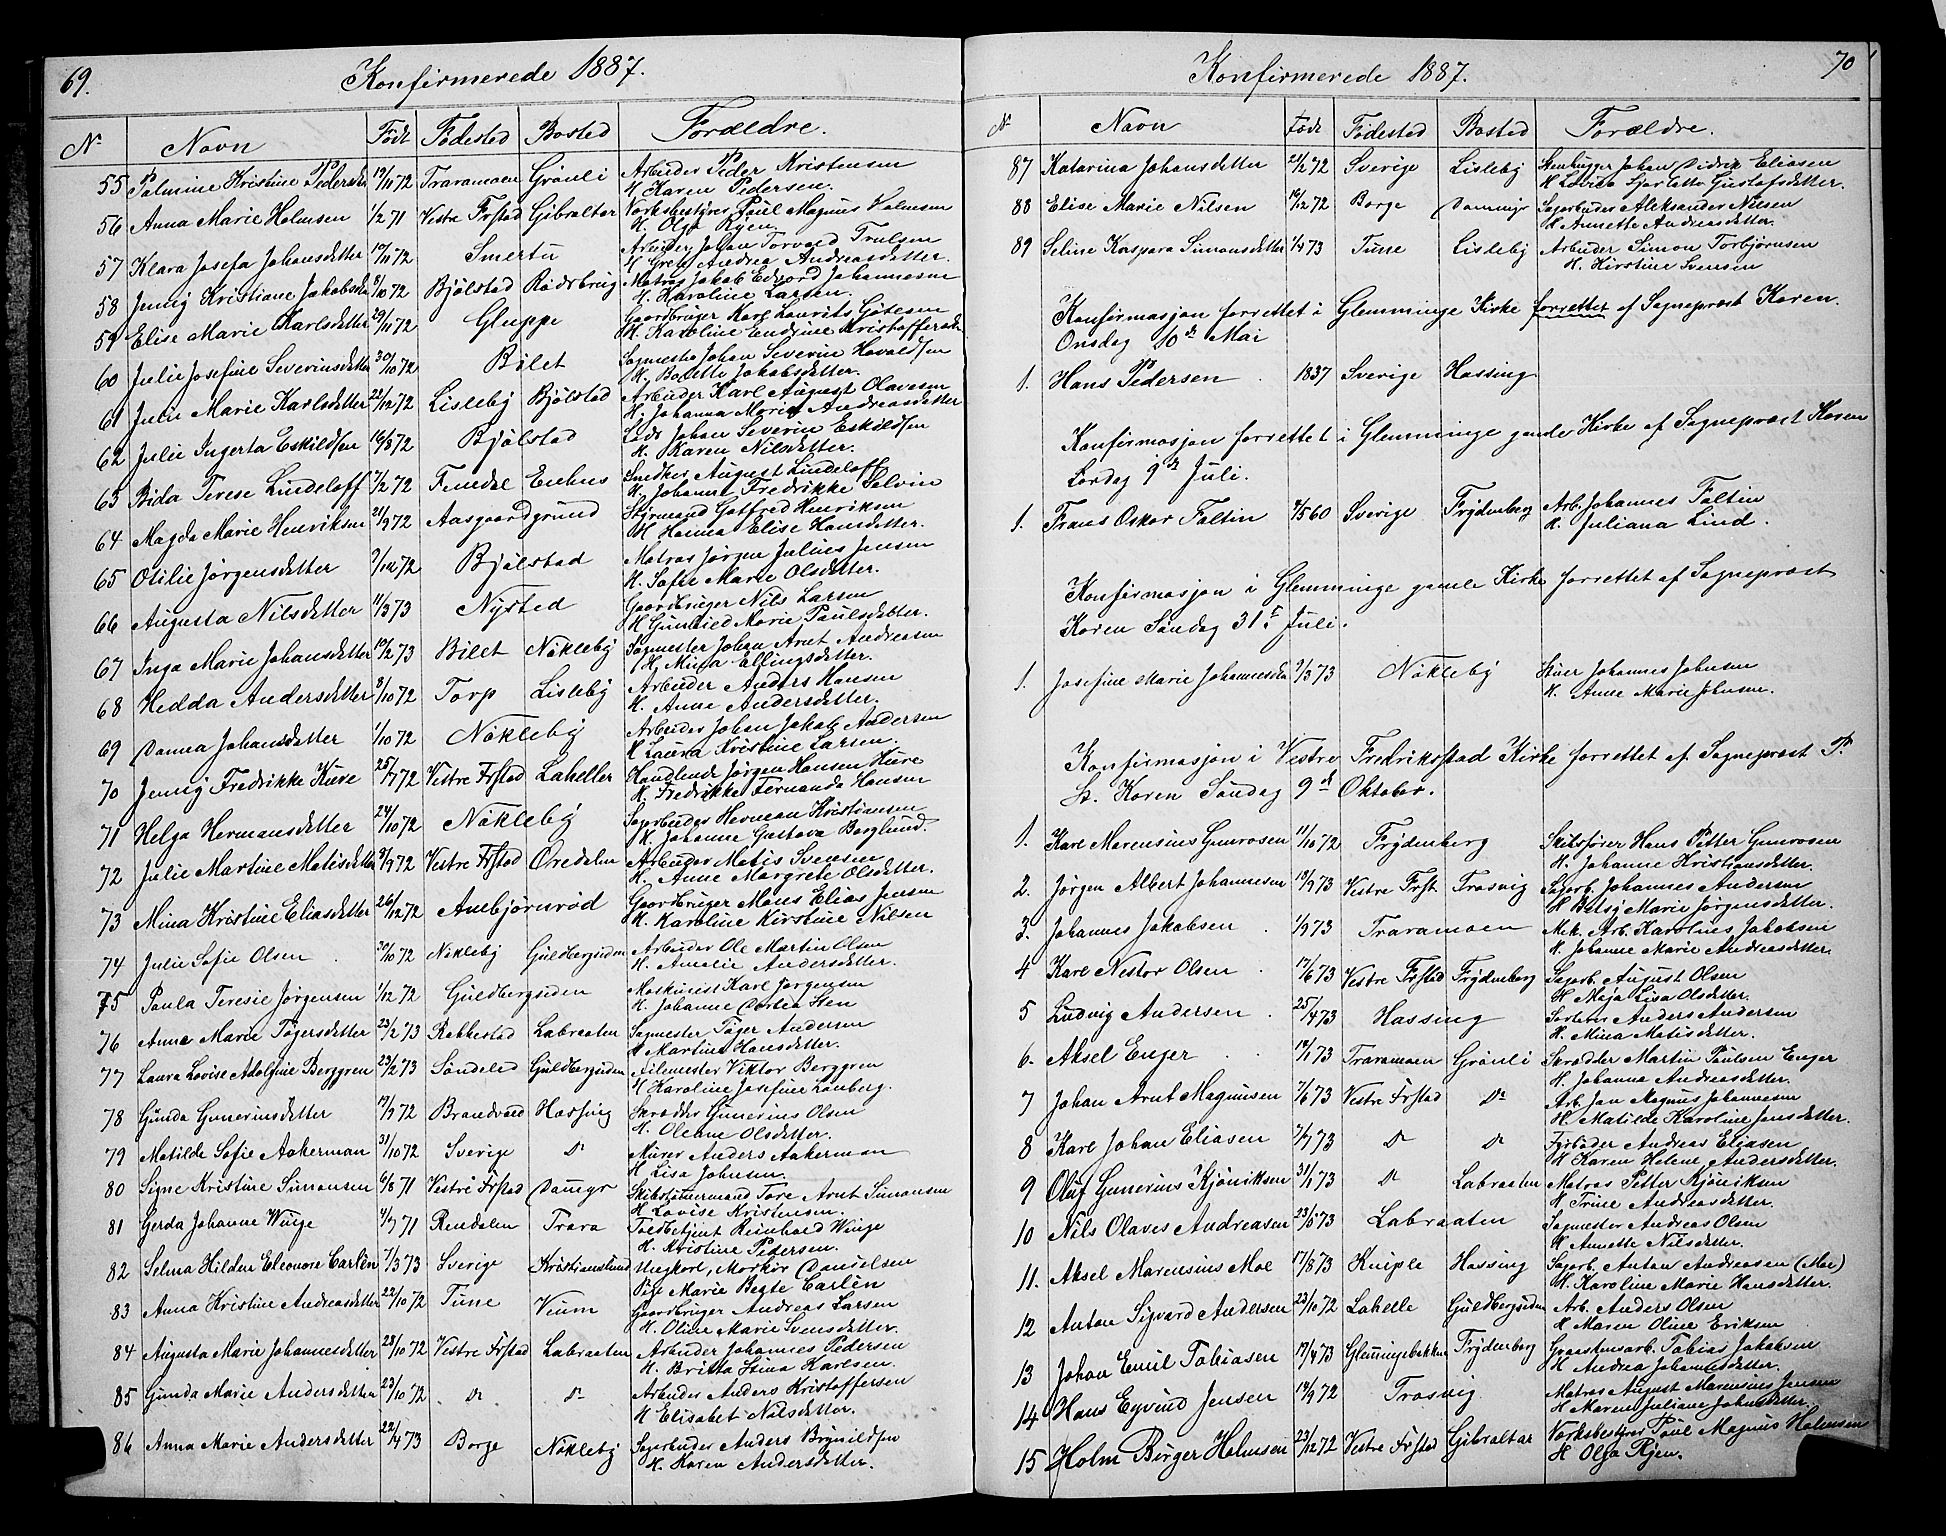 69.
Konfirmerede 1887.
No Navn Födt Födested Bosted Forældre.
55 Palmine Kristine Pedersdtr 19/11072 Traramoen Grönli Arbeider Peder Kristensen
H. Karen Pedersen.
56 Anna Marie Holmsen 1/2 71 Vestre Frstad Gibraltar Værksbestyrer Paul Magnus Holmsen
H. Olga Ryen.
57 Klara Josefa Johansdetter 72 Smertu Arbeider Johan Torvald Trulsen
H. Grete Andrea Andreasdetter.
58 Jenny Kristiane Jakobsdtr 8/10 72 Bjölstad Rödsbrug Matros Jakob Edvard Johannesen
H. Karoline Larsen.
59 Elise Marie Karlsdetter 29/11 72 Gluppe Gaardbruger Karl Laurits Götesen
H. Karoline Endrine Kristoffersdtr
60 Julie Josefine Severinsdetter 30/10 72 Bilet Sagmester Johan Severin Havaldsen
H. Bolette Jakobsdetter.
61 Julie Marie Karlsdetter 22/12 72 Lisleby Bjölstad Arbeider Karl August Olavesen
H. Johanna Marie Andreasdetter
62 Julie Ingerta Eskildsen 16/8 72 Bjölstad Lods Johan Severin Eskildsen
H. Karen Nilsdetter.
63 Bida Terese Lindeloff 7/2 72 Enehus Snedker August Lindeloff
H. Johanne Fredrikke Selvin
64 Magda Marie Henriksen 21/9 72 Aasgaardgrund Styrmand Gotfred Henriksen
H. Hanna Elise Hansdetter.
65 Otilie Jörgensdetter 9/12 72 Bjölstad Matros Jörgen Julius Jensen
H. Sofie Marie Olsdetter.
66 Augusta Nilsdetter 11/3 73 Nysted Gaardbruger Nils Larsen
H. Gunild Marie Paulsdetter.
67 Inga Marie Johansdetter 19/2 73 Bilet Nökleby Sagmester Johan Arnt Andreasen
H. Mina Ellingsdetter.
68 Hedda Andersdetter 8/10 72 Torp Lisleby Arbeider Anders Hansen
H. Anne Andersdetter.
69 Danna Johansdetter 1/10 72 Nökleby Arbeider Johan Jakob Andersen
H. Laura Kristine Larsen.
70 Jenny Fredrikke Kure 25/7 72 Vestre Frstad Laheller Handlende Jörgen Hansen Kure
H. Fredrikke Fernanda Hansen
71 Helga Hermansdetter 24/10 72 Nökleby Sagarbeider Herman Kristiansen
H. Johanne Gustava Berglund.
72 Julie Martine Matisdetter 9/9 72 Vestre Frstad Oredalen Arbeider Matis Svensen
H. Anne Margrete Olsdetter.
73 Mina Kristine Eliasdetter 26/12 72 Ambjörnröd Gaardbruger Mons Elias Jensen
H. Karoline Kirstine Nilsen
74 Julie Sofie Olsen 30/10 72 Nökleby Guldbergsiden Arbeider Ole Martin Olsen
H. Amalie Andersdetter.
75 Paula Teresie Jörgensen 1/12 72 Guldbergsiden Maskinist Karl Jörgensen
H. Johanne Dortea Sten
76 Anne Marie Tögersdetter 23/2 73 Rakkestad Labraaten Sagmester Töger Andersen
H. Martine Hansdetter.
77 Laura Lovise Adolfine Berggren 23/2 73 Söndeled Guldbergsiden Filemester Viktor Berggren
H. Karoline Josefine Lönberg.
78 Gunda Gunerinsdetter 19/9 72 Brandvold Hassing Skrædder Gunerius Olsen
H. Oleane Olsdetter.
79 Matilde Sofie Aakerman 31/10 72 Sverige Do Murer Anders Aakerman
H. Lisa Johnsen
80 Signe Kristine Simonsen 6/8 71 Vestre Frstad Damyr Skibstömmermand Tore Arnt Simonsen
H. Lovise Kristensen.
81 Gerda Johanne Winge 4/7 71 Rendalen Trara Toldbetjent Reinhold Winge
H. Kristine Pedersen.
82 Selma Hildur Eleonore Carlén 7/3 73 Sverige Kristianslund Ungkarl, Markör Danielsen
Pige Marie Beate Carlén
83 Anna Kristine Andreasdetter 22/10 72 Tune Veum Gaardbruger Andreas Larsen
H. Oline Marie Svensdetter.
84 Augusta Marie Johannesdetter 28/10 72 Vestre Frstad Labraaten Arbeider Johannes Pedersen
H. Britta Stina Karlsen.
85 Gunda Marie Andersdetter 23/10 72 Do Do Arbeider Anders Kristoffersen
H. Elisabet Nilsdetter.
86 Anna Marie Andersdetter 22/4 73 Borge Nökleby Sagarbeider Anders Brynildsen
H. Karen Andersdetter.
70
Konfirmerede 1887.
No Navn Födt Födested Bosted Forældre.
87 Katarina Johansdetter 21/2 72 Sverige Lisleby Stenhugger Johan Didrik Eliasen
H. Lovisa Gustafsdetter.
88 Elise Marie Nilsen 16/12 72 Borge Dammyr Sagarbeider Aleksander Nilsen
H. Annette Andreasdetter.
89 Seline Kaspara Simonsdetter 1/4 73 Tune Lisleby Arbeider Simon Torbjörnsen
H. Kirstine Svensen
Konfirmasjon forrettet i Glemminge Kirke forrettet af Sogneprest Koren.
Onsdag 10de Mai
1. Hans Pedersen . 1837 Sverige Hassing
Konfirmasjon forrettet i Glemminge gamle Kirke af Sogneprest Koren
Lördag 9de Juli.
1. Frans Oskar Faltin 4/5 60 Sverige Frydenberg Arb. Johannes Faltin
H. Juliana Lind.
Konfirmasjon i Glemminge gamle Kirke forrettet af Sogneprest
Koren Söndag 31te Juli.
1. Josefine Marie Johannesdtr 9/3 73 Nökleby Stuer Johannes Johnsen
H. Anne Marie Johnsen.
Konfirmasjon i Vestre Fredriksstad Kirke forrettet af Sogneprest P.
St. Koren Söndag 9de Oktober.
1. Karl Marensius Gunrosen 11/10 72 Frydenberg Skibsförer Hans Petter Gunrosen
H. Johanne Kristiansdetter.
2. Jörgen Albert Johannesen 13/9 73 Vestre Frst. Trosvig Sagarb. Johannes Andersen
H. Betsy Marie Jörgensdetter.
3. Johannes Jakobsen . 1/9 73 Traramoen Mek. Arb. Karolius Jakobsen
H. Johanne Marie Andreasdetter.
4 Karl Nestor Olsen . 17/6 73 Vestre Frstad Frydenberg Sagarb. August Olsen
H. Maja Lisa Olsdetter.
5 Ludvig Andersen . 25/4 73 Hassing Sorterer Anders Andersen
H. Mina Matisdetter.
6. Aksel Enger . 14/1 73 Traramoen Grönli Skrædder Martin Paulsen Enger
H. Johanna Andreasdetter.
7 Johan Arnt Magnusen 7/6 73 Vestre Frstad Do Arb. Jan Magnus Johannesen
H. Matilde Karoline Jensdetter.
8 Karl Johan Eliasen 7/7 73 Do Do Fyrböder Andreas Eliasen
H. Karen Helene Andersdetter.
9 Oluf Gunerius Kjöniksen 31/1 73 Do Labraaten Matros Petter Kjöniksen
H. Trine Andreasdetter.
10 Nils Olaves Andreasen 23/5 73 Labraaten Sagmester Andreas Olsen
H. Annette Nilsdetter.
11. Aksel Marensius Moe 17/8 73 Kniple Hassing Sagarb. Anton Andreasen (Moe)
H. Karoline Marie Hansdetter.
12 Anton Sigvard Andersen 23/10 72 Lahelle Guldbergsiden Arb. Anders Olsen
H. Maren Oline Eriksen
13 Johan Emil Tobiasen 17/4 73 Glemmingebakken Frydenberg Graastensarb. Tobias Jakobsen
H. Andrea Johannesdetter.
14 Hans Eyvind Jensen 14/9 72 Trosvig. Matros August Marensius Jensen
H. Maren Juliane Johnsdetter.
15 Holm Birger Holmsen 23/12 72 Vestre Frstad Gibraltar Værksbestyrer Paul Magnus Holmsen
H. Olga Ryen.